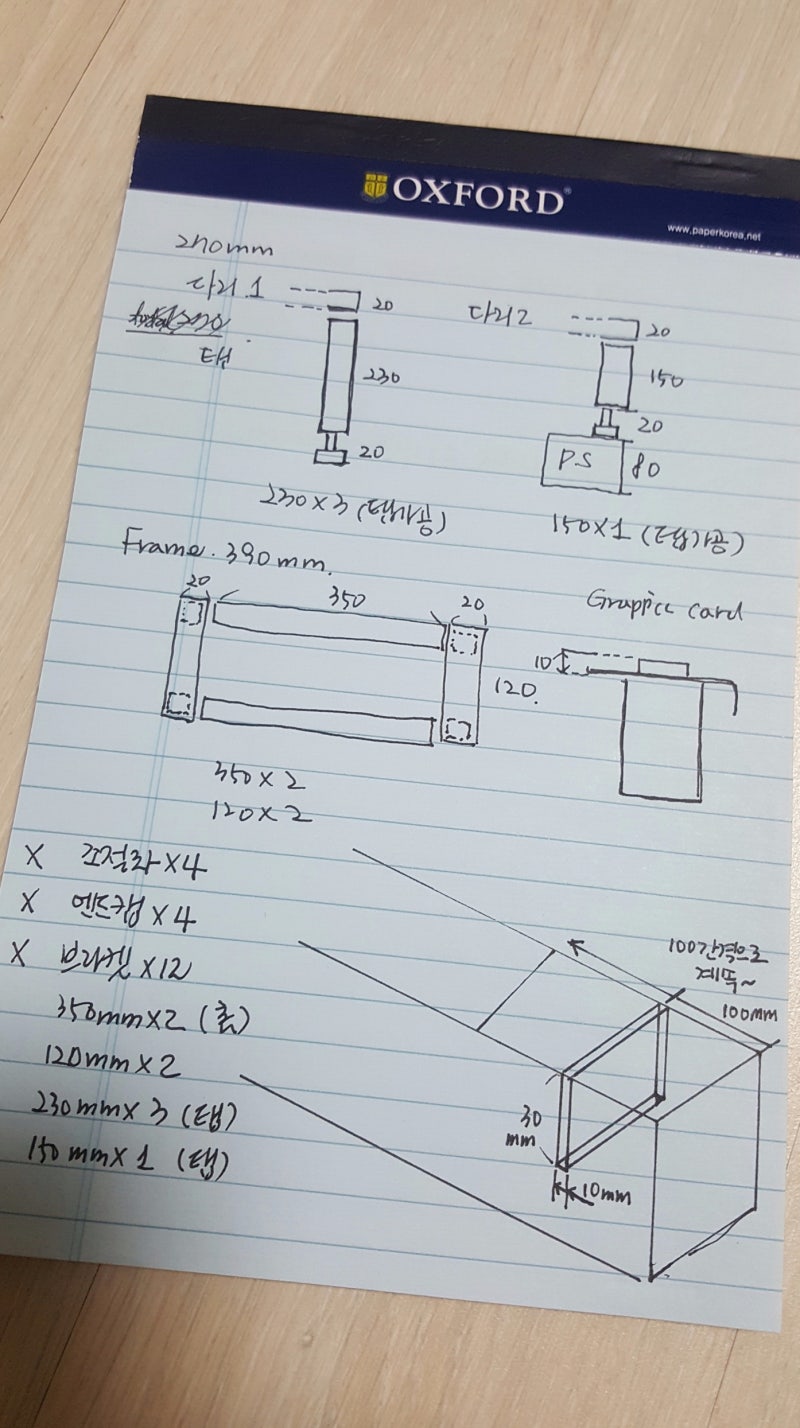 OXFORD
www.paperkorea.net
270mm
다리 1
탭
20
230
20
다리 2
20
150
20
PS
80
230 x 3 (탭가공)
150 x 1 (탭가공)
Frame. 390mm.
20
350
20
120.
Grappicc card
10
350 x 2
120 x 2
X 조절좌 x 4
X 엔드캡 x 4
X 브라켓 x 12
350mm x 2 (홈)
120mm x 2
230mm x 3 (탭)
150mm x 1 (탭)
100간격으로
계뚝~
100mm
30
mm
10mm